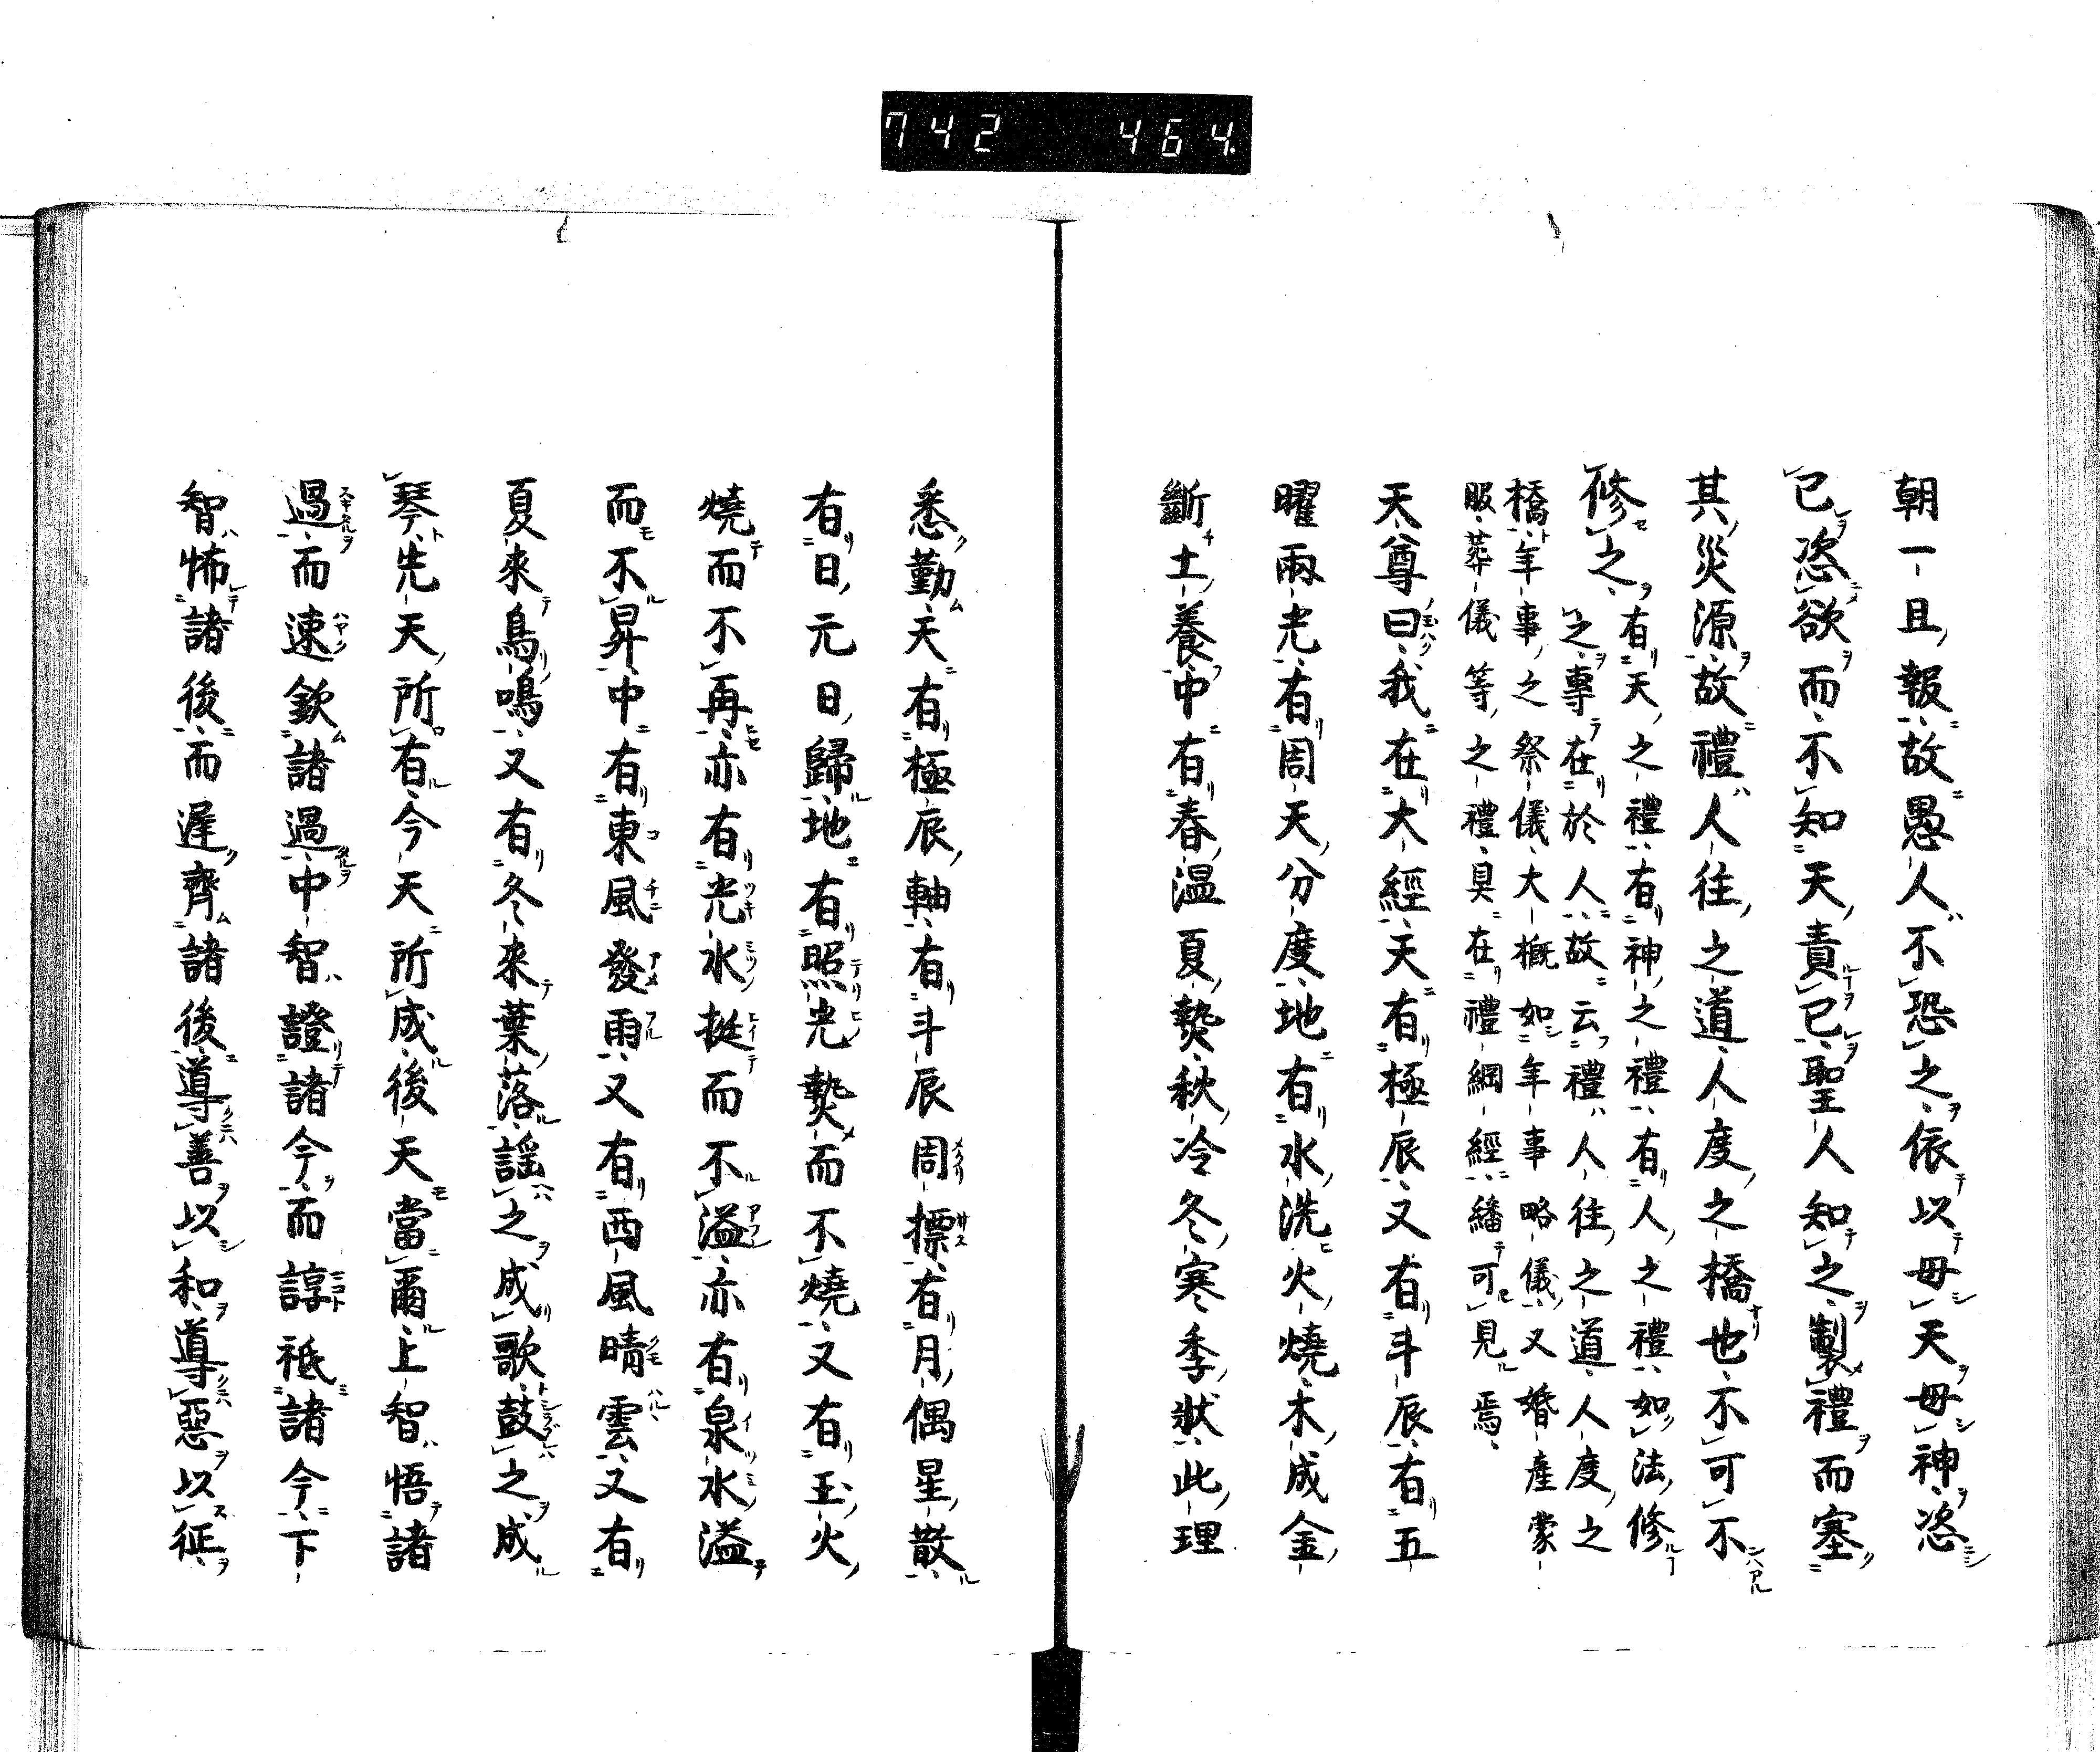 742 464
朝一旦報故愚人不恐之依以毋天毋神恣
已恣欲而不知天責已聖人知之製禮而塞
其災源故禮人往之道人度之橋也不可不
修之
有天之禮有神之禮有人之禮如法修
之專在於人故云禮人往之道人度之
橋年事之祭儀大概如年事略儀又婚產蒙
服葬儀等之禮具在禮綱經繙可見焉
天尊曰我在大經天有極辰又有斗辰有五
曜兩光有周天分度地有水洗火燒木成金
斷土養中有春温夏𤍠秋冷冬寒季狀此理
悉勤天有極辰軸有斗辰周標有月偶星散
有日元日歸地有照光𤍠而不燒又有玉火
燒而不再亦有光水挺而不溢亦有泉水溢
而不昇中有東風發雨又有西風晴雲又有
夏來鳥鳴又有冬來葉落謡之成歌鼓之成
琴先天所有今天所成後天當爾上智悟諸
過而速欽諸過中智證諸今而諄祗諸今下
智怖諸後而遲齊諸後導善以和導惡以征